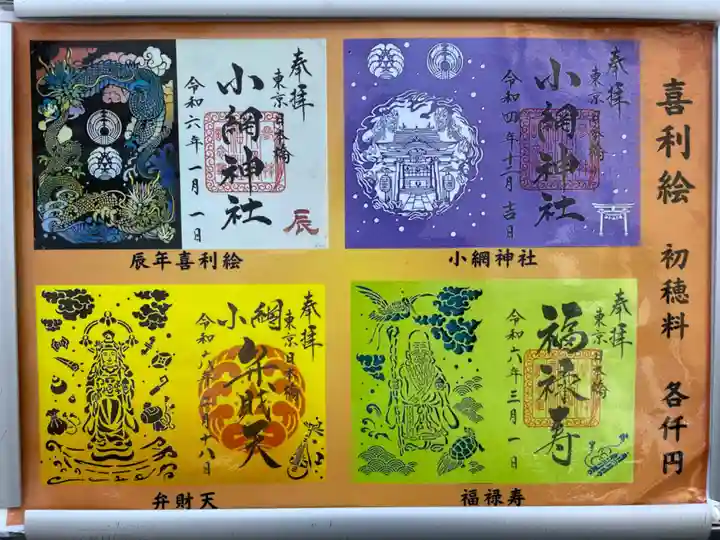 喜利絵 初穂料 各仟円
奉拝
東京日本橋
小網神社
令和六年一月一日
辰
辰年喜利絵
奉拝
東京日本橋
小網神社
令和四年十二月吉日
小網神社
奉拝
東京日本橋
小網
弁財天
弁財天
奉拝
東京日本橋
福禄寿
令和六年三月一日
福禄寿